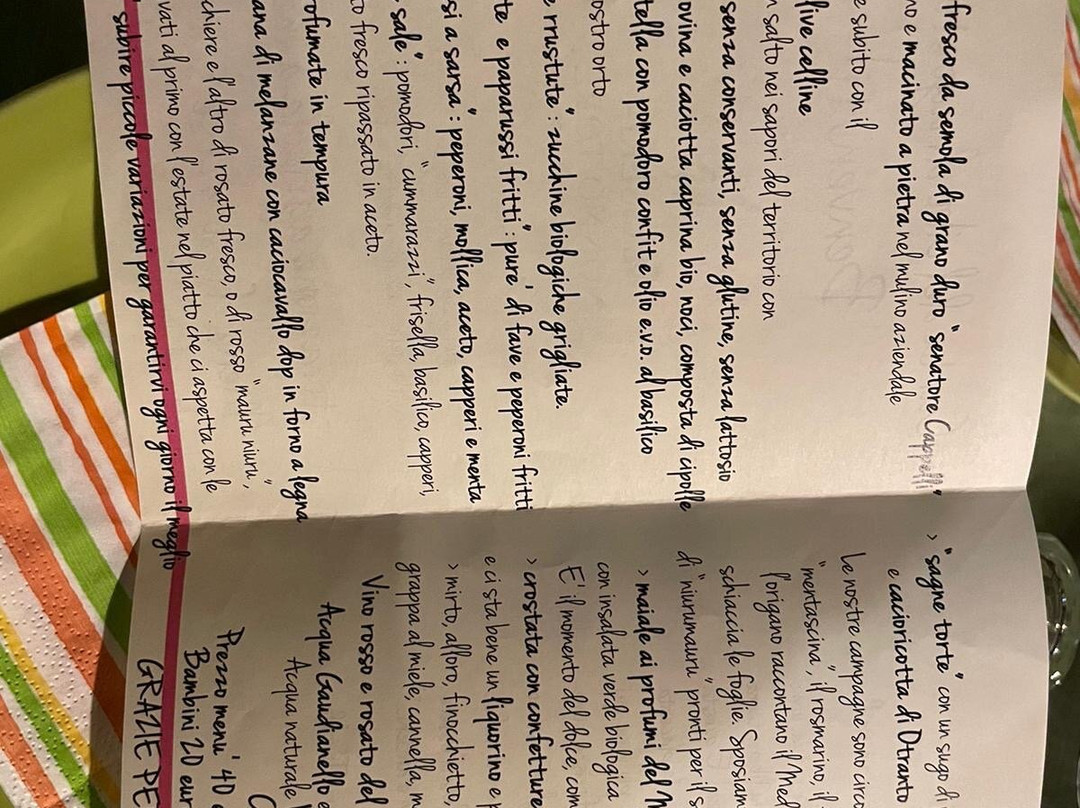 fresco da semola di grano duro "senatore Cappelli"
no e macinato a pietra nel mulino aziendale
e subito con il
live celline
n salto nei sapori del territorio con
senza conservanti, senza glutine, senza lattosio
ovina e caciotta caprina bio, noci, composta di cipolle
tella con pomodoro confit e olio e.v.o. al basilico
ostro orto
e rrustute": zucchine biologiche grigliate.
te e paparussi fritti": pure' di fave e peperoni fritti
si a sarsa": peperoni, mollica, aceto, capperi e menta
sale": pomodori, "cummarazzi", frisella, basilico, capperi,
to fresco ripassato in aceto.
ofumate in tempura
ana di melanzane con caciocavallo dop in forno a legna
chiere e l'altro di rosato fresco, o di rosso "mauru niuru",
vati al primo con l'estate nel piatto che ci aspetta con le
subire piccole variazioni per garantirvi ogni giorno il meglio
> "sagne torte" con un sugo d
e cacioricotta di Otranto
Le nostre campagne sono circo
"mentascina", il rosmarino, il
l'origano raccontano il Med
schiaccia le foglie. Sposiam
di "niurumauru" pronti per il s
> maiale ai profumi del M
con insalata verde biologica
E' il momento del dolce, com
> crostata con confetture
e ci sta bene un liquorino e p
> mirto, alloro, finocchietto,
grappa al miele, cannella, m
Vino rosso e rosato del
Acqua Gaudianello e
Acqua naturale
C
Prezzo menu' 40
Bambini 20 eur
GRAZIE PE